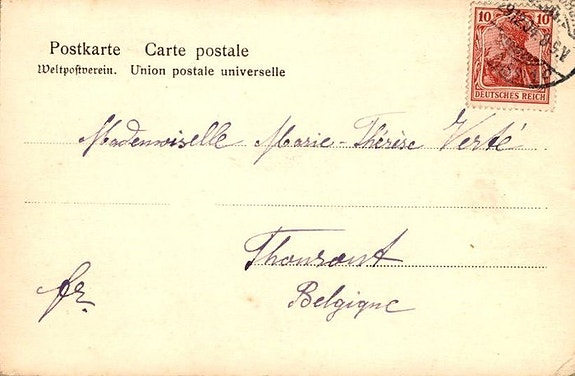 Postkarte Carte postale
Weltpostverein. Union postale universelle
10 10
DEUTSCHES REICH
Mademoiselle Marie-Thérèse Verté
Thouront
Belgique
fr.